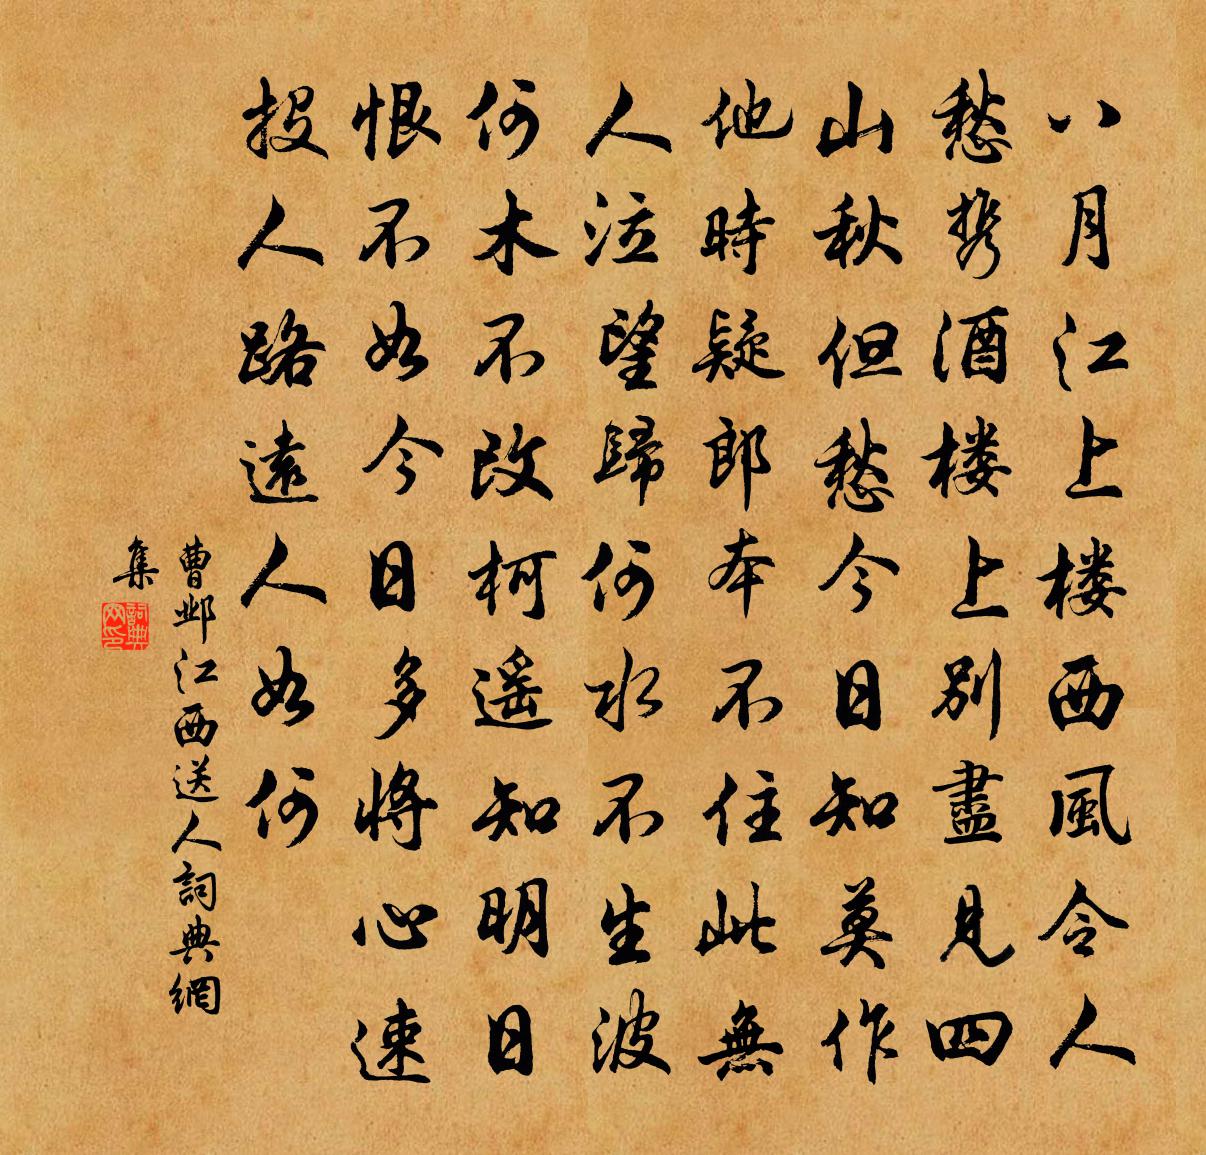 八月江上楼西風令人
愁携酒楼上别盡見四
山秋但愁今日知莫作
他時疑郎本不住此無
人泣望歸何水不生波
何木不改柯遥知明日
恨不如今日多将心速
投人路遠人如何
曹邺江西送人詞典網
集
詞典
网印